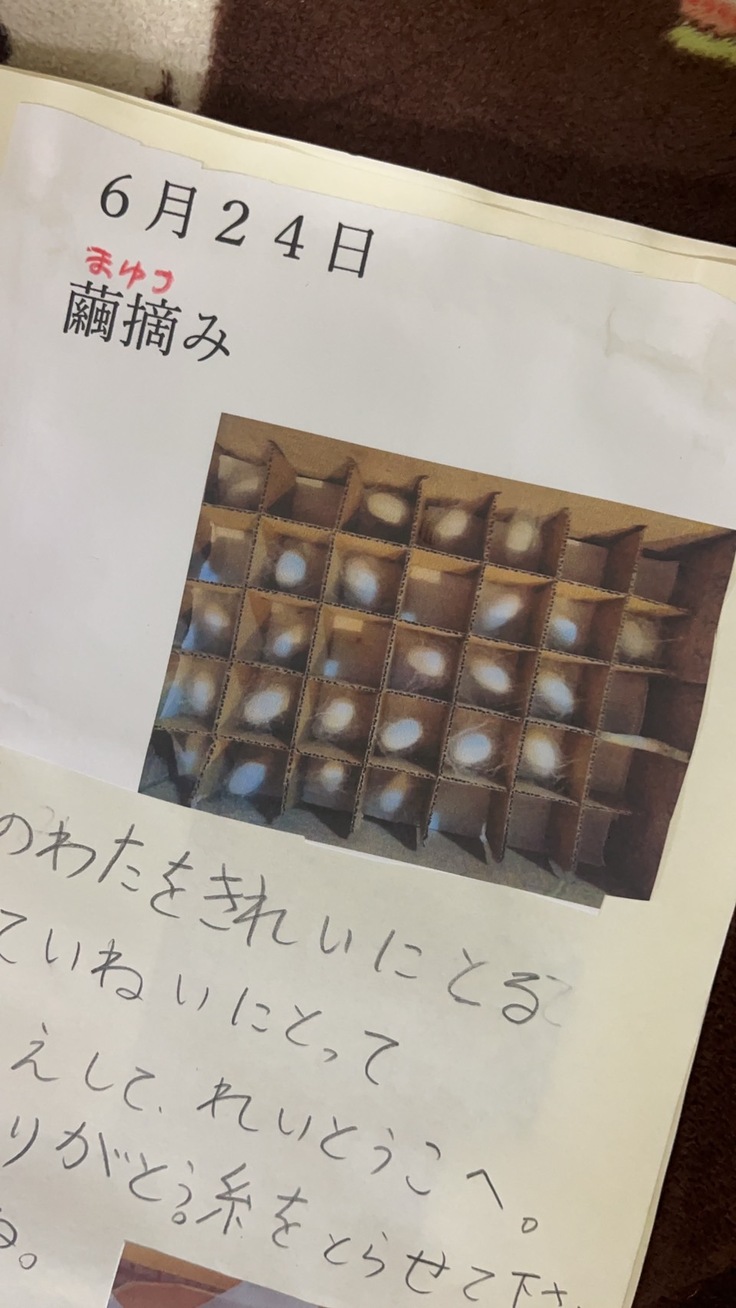 6月24日
まゆつ
繭摘み
のわたをきれいにとる
ていねいにとって
えして、れいとうこへ。
りがとう。糸をとらせて下さ
ね。